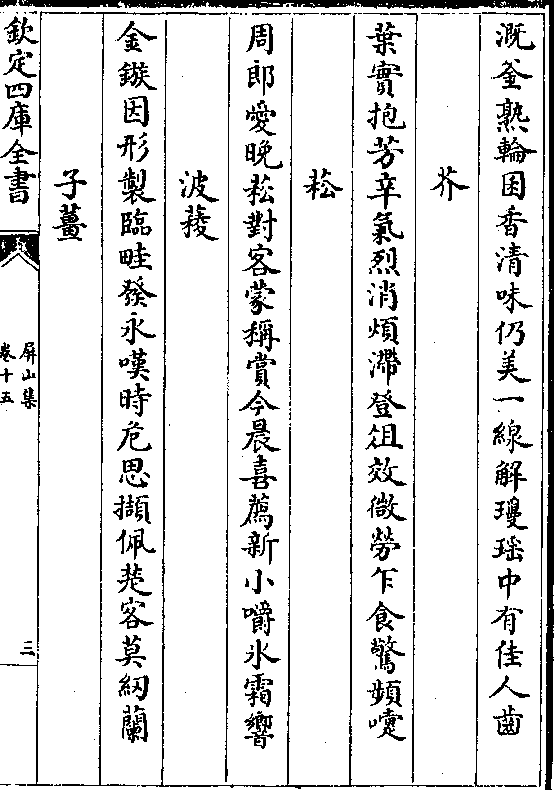 溉釡熟輪囷香清味仍美一線解瓊瑶中有佳人齒
芥
葉實抱芳辛氣烈消煩滯登俎效微勞乍食驚頻嚏
菘
周郎愛晚菘對客蒙稱賞今晨喜薦新小嚼氷霜響
波薐
金鏃因形製臨畦發永嘆時危思擷佩楚客莫紉蘭
子薑
欽定四庫全書
屏山集
卷十五
三